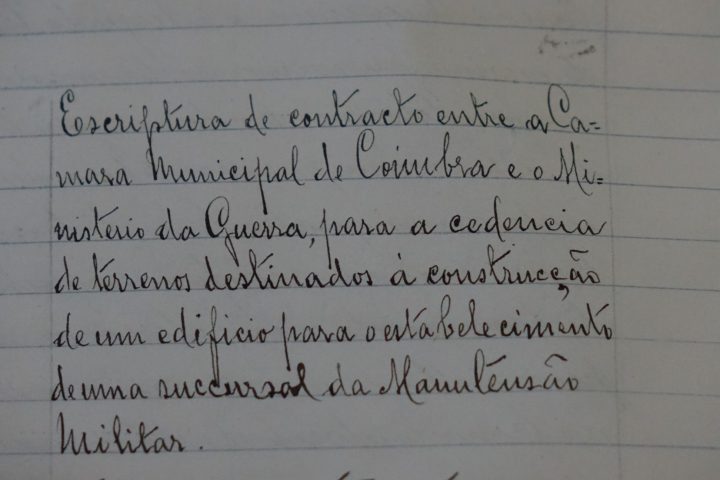 Escriptura de contracto entre a Ca=
mara Municipal de Coimbra e o Mi=
nisterio da Guerra, para a cedencia
de terrenos destinados à construcção
de um edificio para o estabelecimento
de uma succursal da Manutensão
Militar.